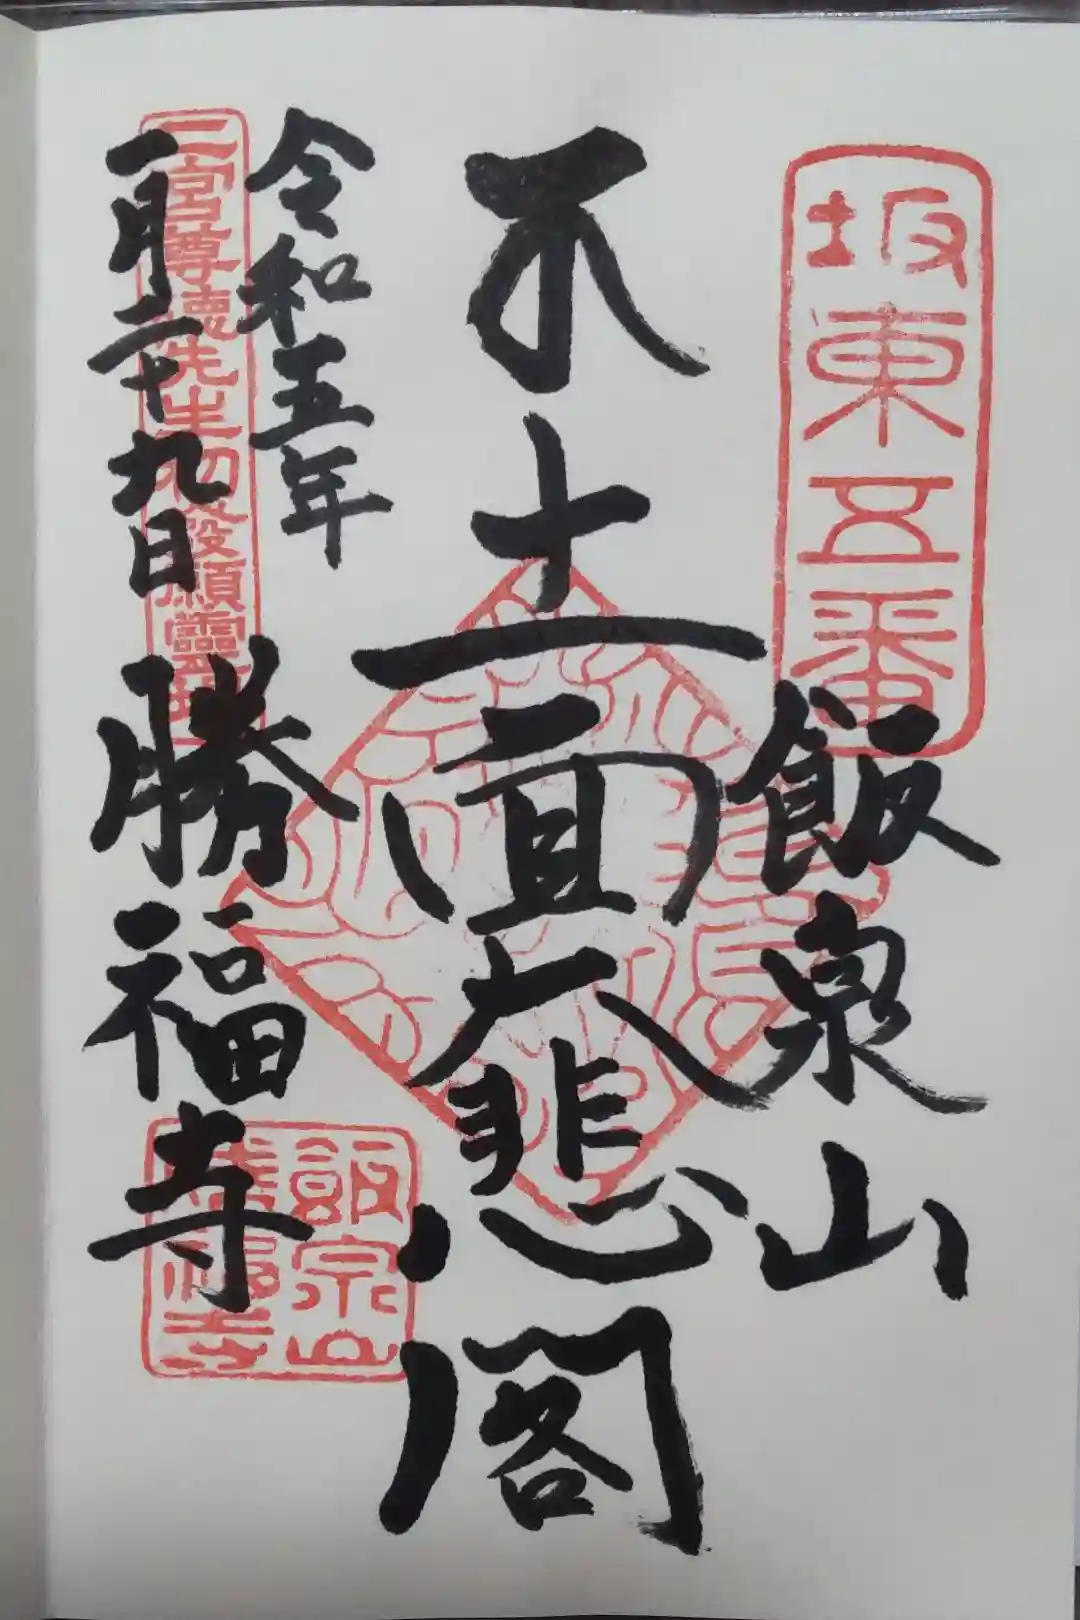 坂東五番
飯泉山
十一面大悲閣
令和五年
一月二十九日
勝福寺
二宮尊徳先生初發願靈場
飯泉山
勝福寺